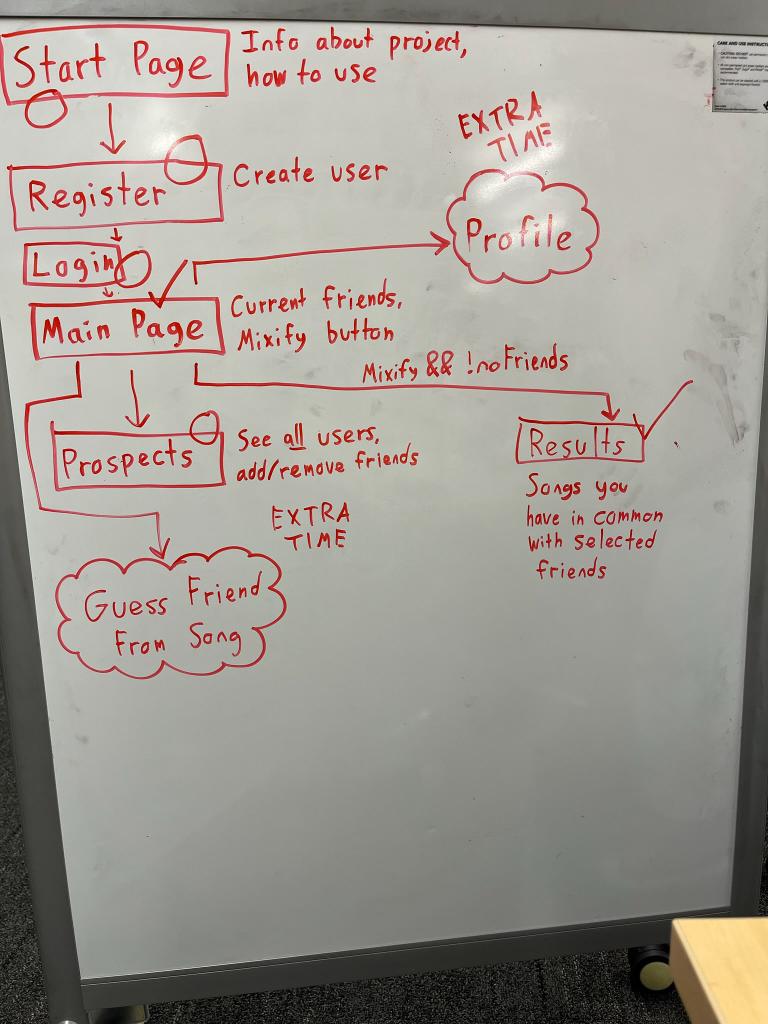 Start Page
Info about project,
how to use
EXTRA
TIME
Register
Create user
Profile
Login
Main Page
Current friends,
Mixify button
Mixify && !noFriends
Prospects
See all users,
add/remove friends
Results
Songs you
have in common
with selected
friends
EXTRA
TIME
Guess Friend
From Song
CARE AND USE INSTRUCT